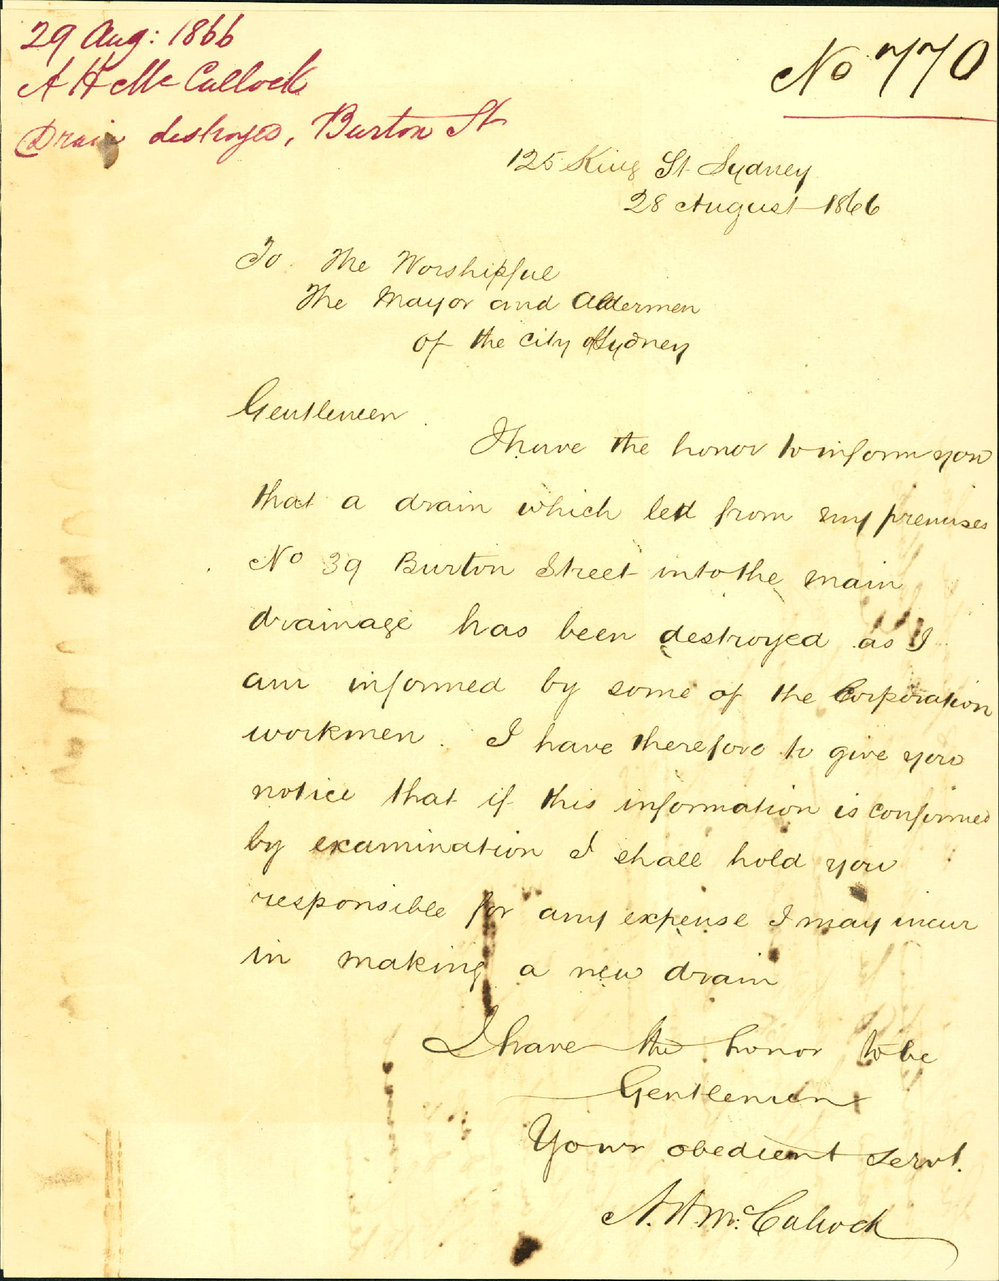 29 Aug: 1866
A H McCulloch
Drain destroyed, Burton St
No 770
125 King St Sydney
28 August 1866
To The Worshipful
The Mayor and Aldermen
of the City of Sydney
Gentlemen.
I have the honor to inform you
that a drain which led from my premises
No 39 Burton Street into the main
drainage has been destroyed as I
am informed by some of the Corporation
workmen. I have therefore to give you
notice that if this information is confirmed
by examination I shall hold you
responsible for any expense I may incur
in making a new drain
I have the honor to be
Gentlemen
Your obedient servt.
A. H. McCulloch